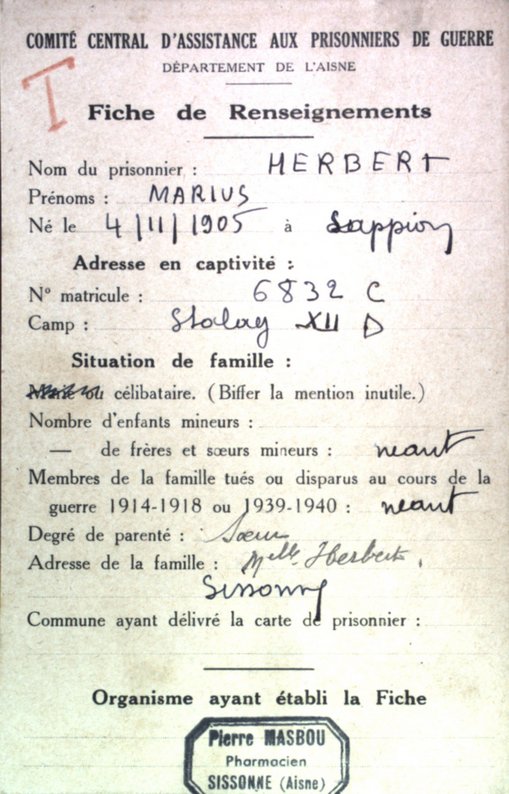 COMITÉ CENTRAL D'ASSISTANCE AUX PRISONNIERS DE GUERRE
DÉPARTEMENT DE L'AISNE
T
Fiche de Renseignements
Nom du prisonnier : HERBERT
Prénoms : MARIUS
Né le 4/11/1905 à Lappion
Adresse en captivité :
N° matricule : 6832 C
Camp : Stalag XII D
Situation de famille :
célibataire. (Biffer la mention inutile.)
Nombre d'enfants mineurs :
— de frères et sœurs mineurs : neant
Membres de la famille tués ou disparus au cours de la
guerre 1914-1918 ou 1939-1940 : neant
Degré de parenté : Sœur
Adresse de la famille : Melle Herbert.
Sissonne
Commune ayant délivré la carte de prisonnier :
Organisme ayant établi la Fiche
Pierre MASBOU
Pharmacien
SISSONNE (Aisne)